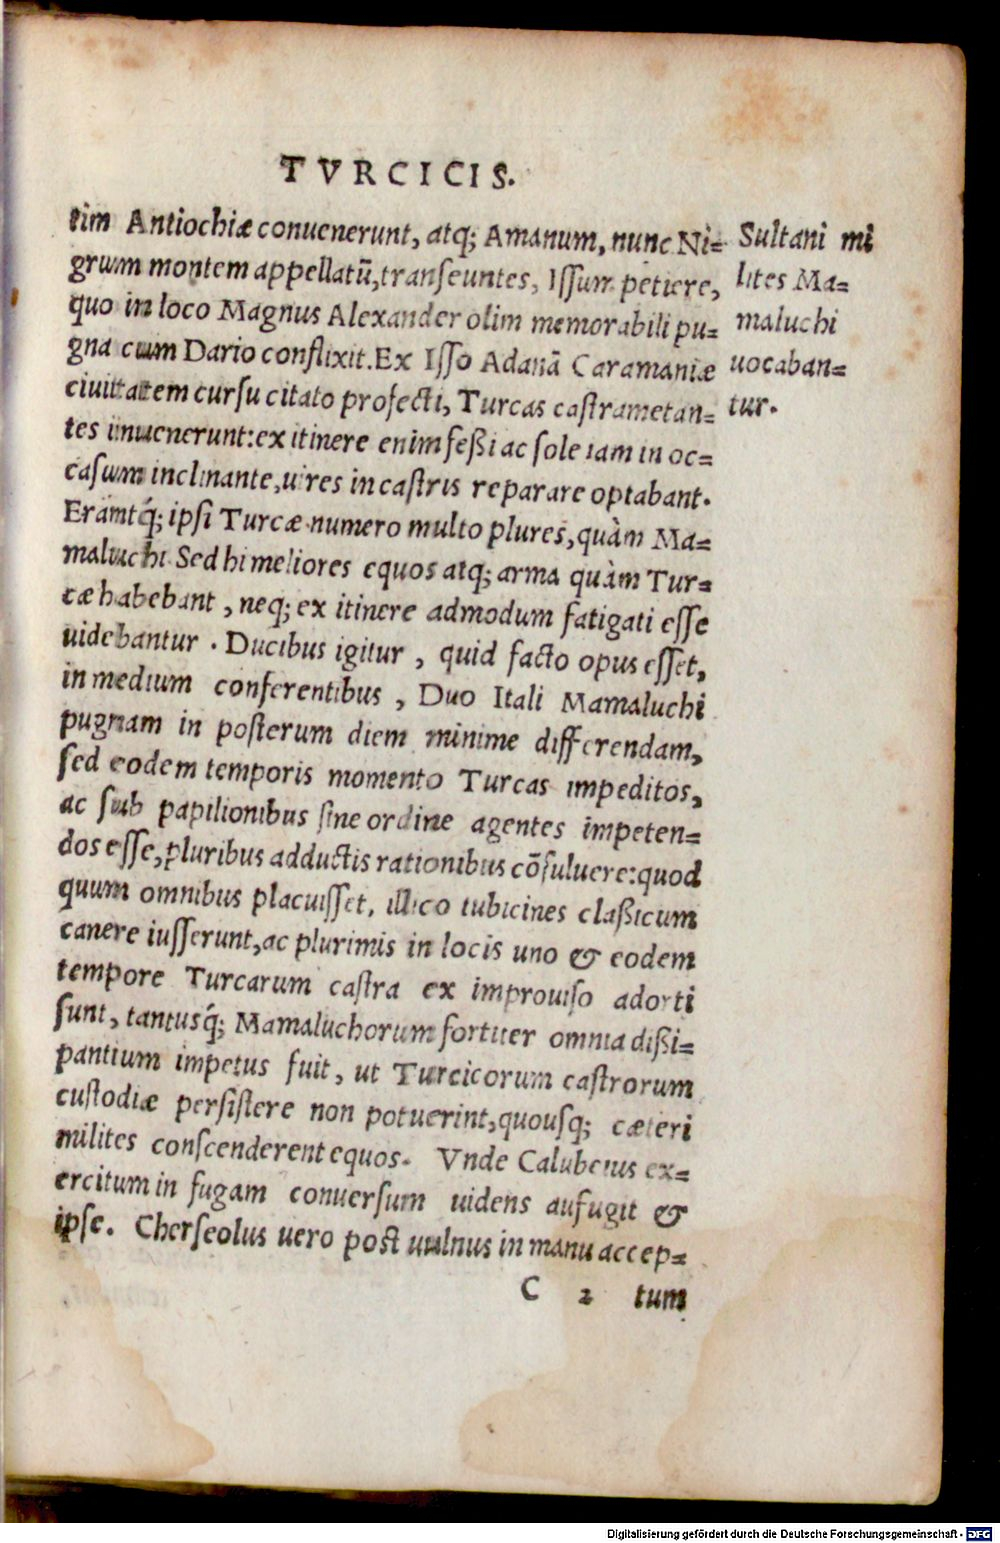 TVRCICIS.
tim Antiochiæ conuenerunt, atq; Amanum, nunc Ni=
grum montem appellatū, transeuntes, Issum petiere,
quo in loco Magnus Alexander olim memorabili pu=
gna cum Dario conflixit. Ex Isso Adanā Caramaniæ
ciuitatem cursu citato profecti, Turcas castrametan=
tes inuenerunt: ex itinere enim feßi ac sole iam in oc=
casum inclinante, uires in castris reparare optabant.
Erantq́; ipsi Turcæ numero multo plures, quàm Ma=
maluchi Sed hi meliores equos atq; arma quàm Tur=
cæ habebant, neq; ex itinere admodum fatigati esse
uidebantur. Ducibus igitur, quid facto opus esset,
in medium conferentibus, Duo Itali Mamaluchi
pugnam in posterum diem minime differendam,
sed eodem temporis momento Turcas impeditos,
ac sub papilionibus sine ordine agentes impeten=
dos esse, pluribus adductis rationibus cōsuluere: quod
quum omnibus placuisset, illico tubicines claßicum
canere iusserunt, ac plurimis in locis uno & eodem
tempore Turcarum castra ex improuiso adorti
sunt, tantusq́; Mamaluchorum fortiter omnia dißi=
pantium impetus fuit, ut Turcicorum castrorum
custodiæ persistere non potuerint, quousq; cæteri
milites conscenderent equos. Vnde Calubeius ex=
ercitum in fugam conuersum uidens aufugit &
ipse. Cherseolus uero post uulnus in manu accep=
C 2 tum
Sultani mi
lites Ma=
maluchi
uocaban=
tur.
Digitalisierung gefördert durch die Deutsche Forschungsgemeinschaft - DFG